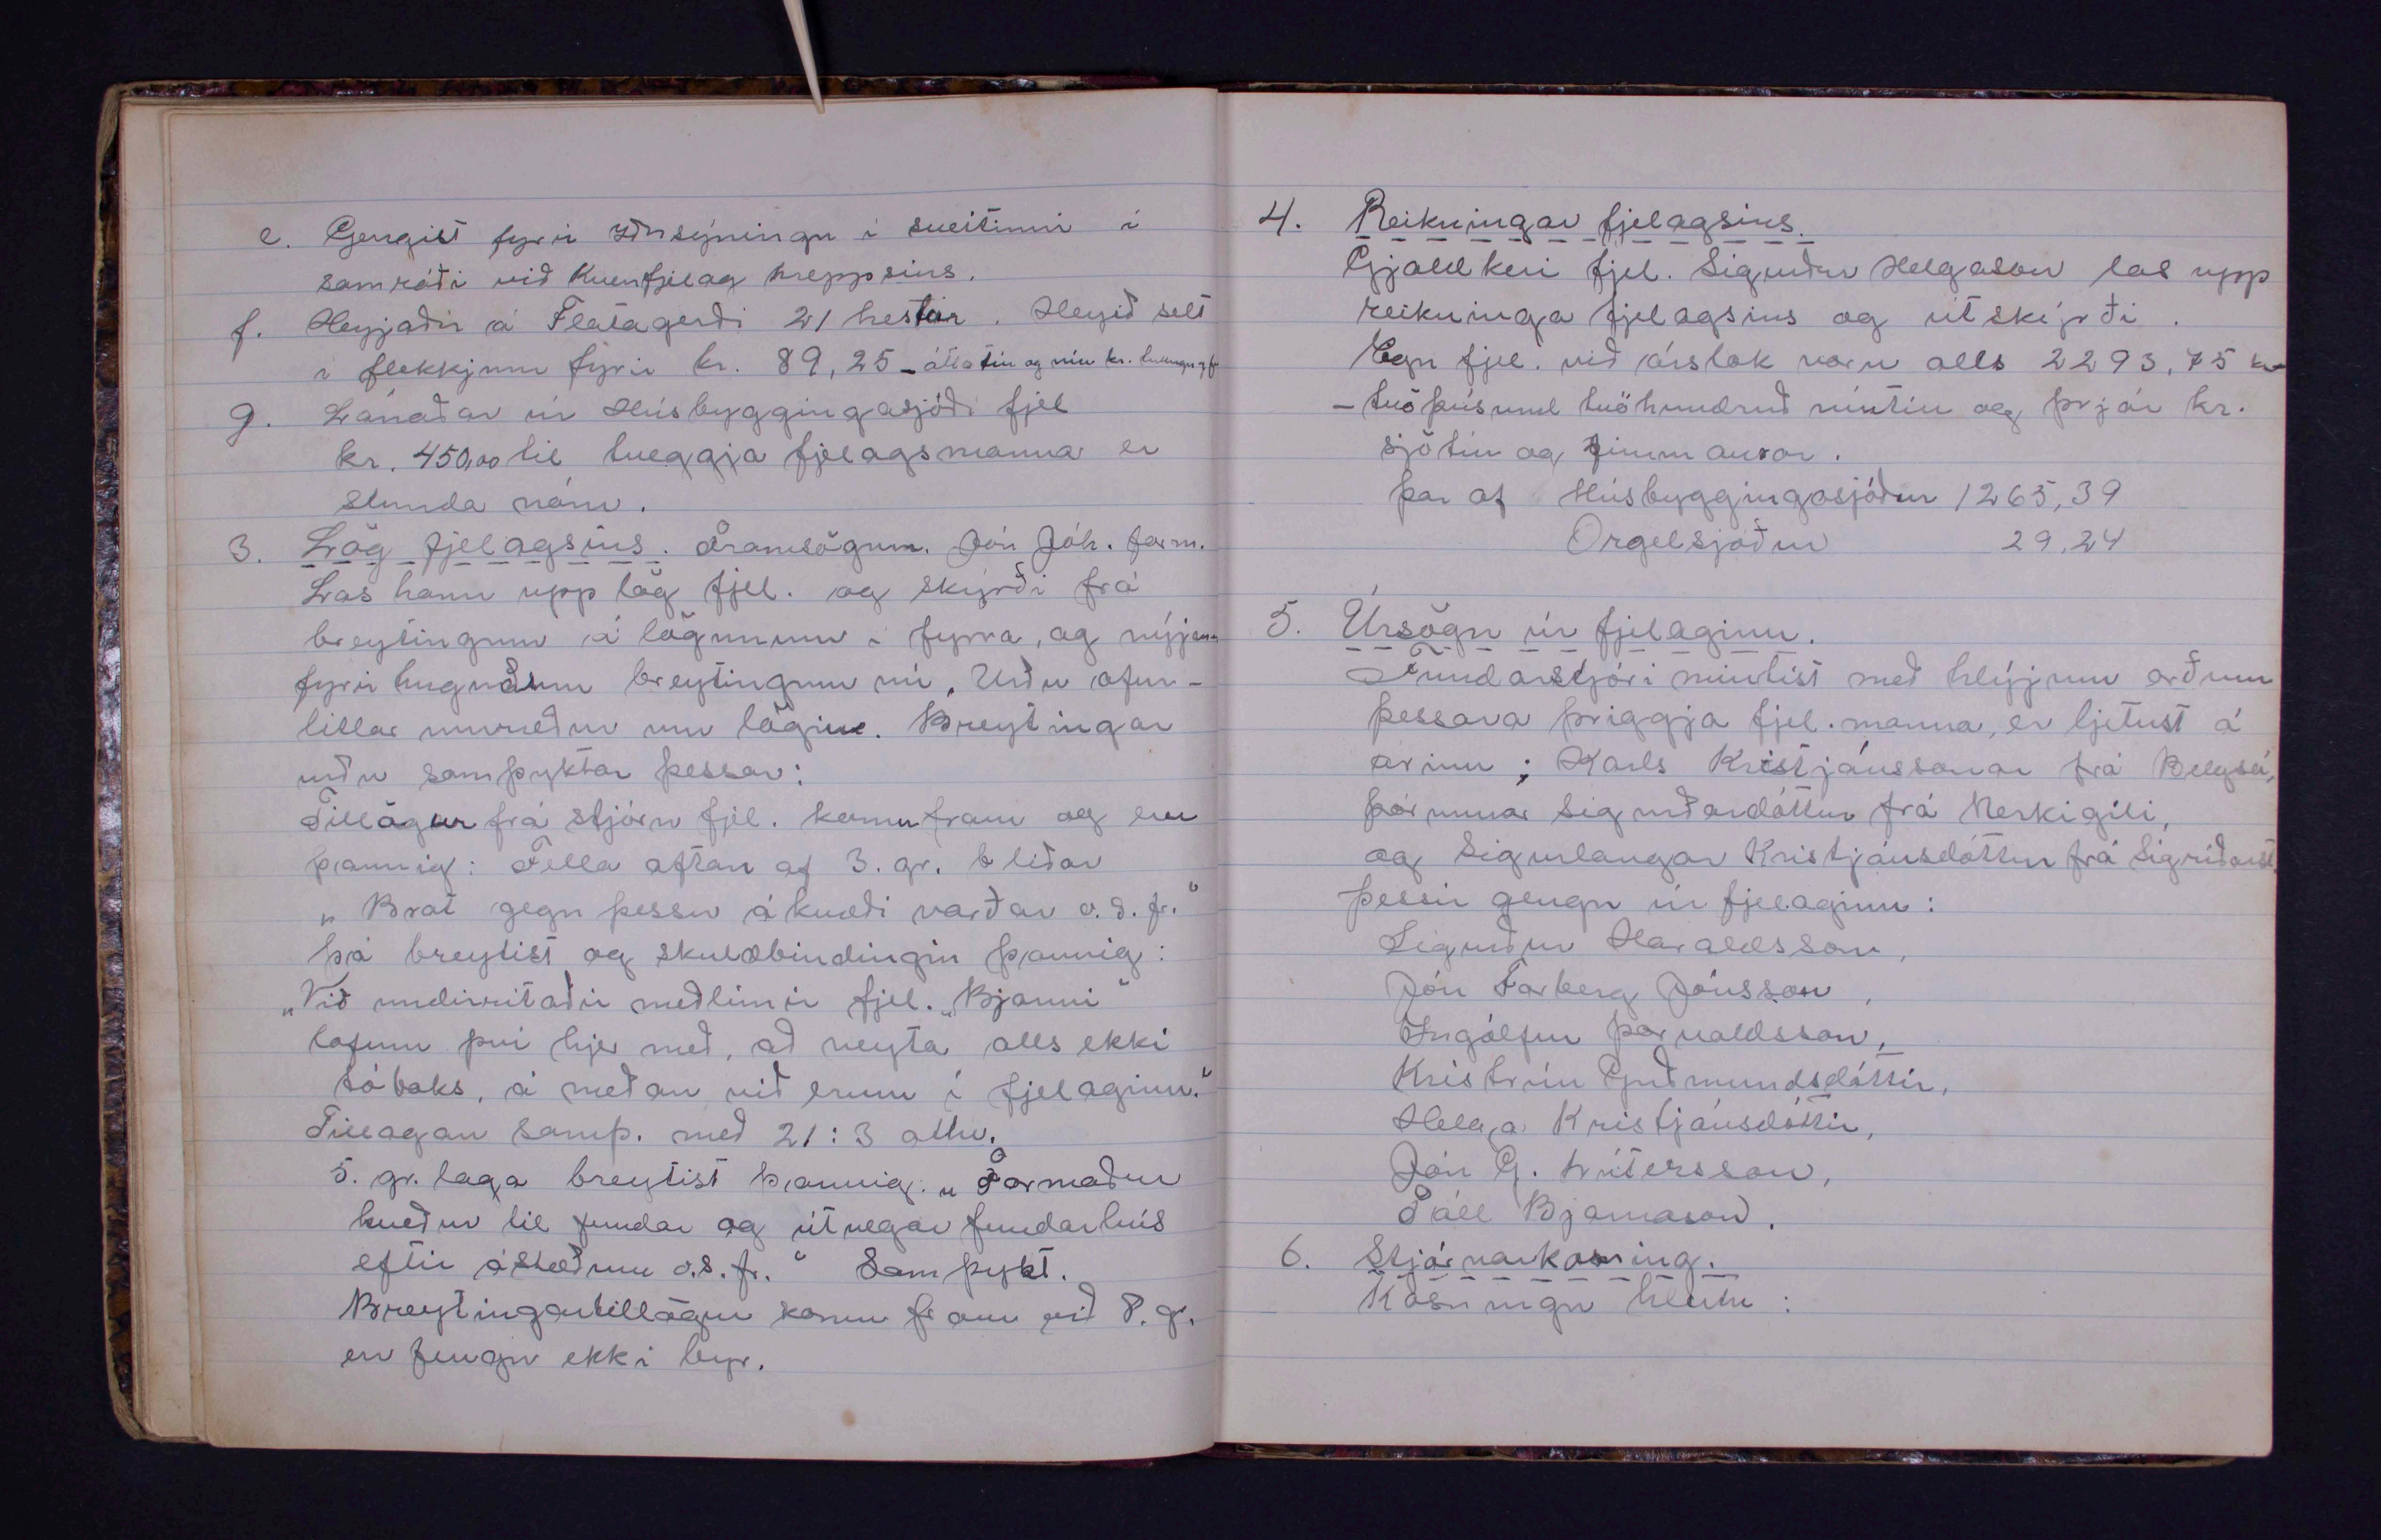 e. Gengist fyrir Iðnsýningu í sveitinni í
samráði við Kvenfjelag hreppsins.
f. Heyjaðir á Flatagerði 21 hestar. Heyið selt
í flekkjnum fyrir kr. 89,25 - áttatíu og níu kr.
g. Lánaðar úr Húsbyggingasjóði fjel
kr. 450,00 til tveggja fjelagsmanna er
stunda nám.
3. Lög fjelagsins. Framsögum. Jón Jóh. form.
Las hann upp lög fjel. og skýrði frá
breytingum á lögunum í fyrra, og nýjum
fyrir huguðum breytingum nú. Urðu ofur-
litlar umræður um lögin. Breytingar
urðu samþyktar þessar:
Tillögur frá stjórn fjel. komu fram og eru
þannig: Fella aftan af 3. gr. b liðar
„Brot gegn þessu ákvæði varðar o.s.fr.“
þá breytist og skuldbindingin þannig:
„Við undirritaðir meðlimir fjel. „Bjarmi“
lofum því hjer með, að neyta alls ekki
tóbaks, á meðan við erum í fjelaginu.“
Tillagan samþ. með 21:3 atkv.
5. gr. laga breytist þannig. „Formaður
kveður til fundar og útvegar fundarhús
eftir ástæðum o.s.fr.“ Samþykt.
Breytingartillögur komu fram við 8. gr.
en fengu ekki byr.
4. Reikningar fjelagsins.
Gjaldkeri fjel. Sigurður Helgason las upp
reikninga fjelagsins og útskýrði.
Egn fjel. við árslok voru alls 2293,75 kr
- tvö þúsund tvöhundruð níutíu og þrjár kr.
sjötíu og fimm aurar.
þar af Húsbyggingasjóður 1265,39
Orgelsjóður 29,24
5. Úrsögn úr fjelaginu.
Fundarstjóri mintist með hlýjum orðum
þessara þriggja fjel. manna, er ljetust á
árinu; Karls Kristjánssonar frá Belgsá,
Þórunnar Sigurðardóttur frá Merkigili,
og Sigurlaugar Kristjánsdóttur frá Sigríðarst.
Þessir gengu úr fjelaginu:
Sigurður Haraldsson,
Jón Forberg Jónsson,
Ingólfur Þorvaldsson,
Kristrún Guðmundsdóttir,
Helga Kristjánsdóttir,
Jón G. Pjetersson,
Páll Bjarnason.
6. Stjórnarkosning.
Kosningu hlutu: